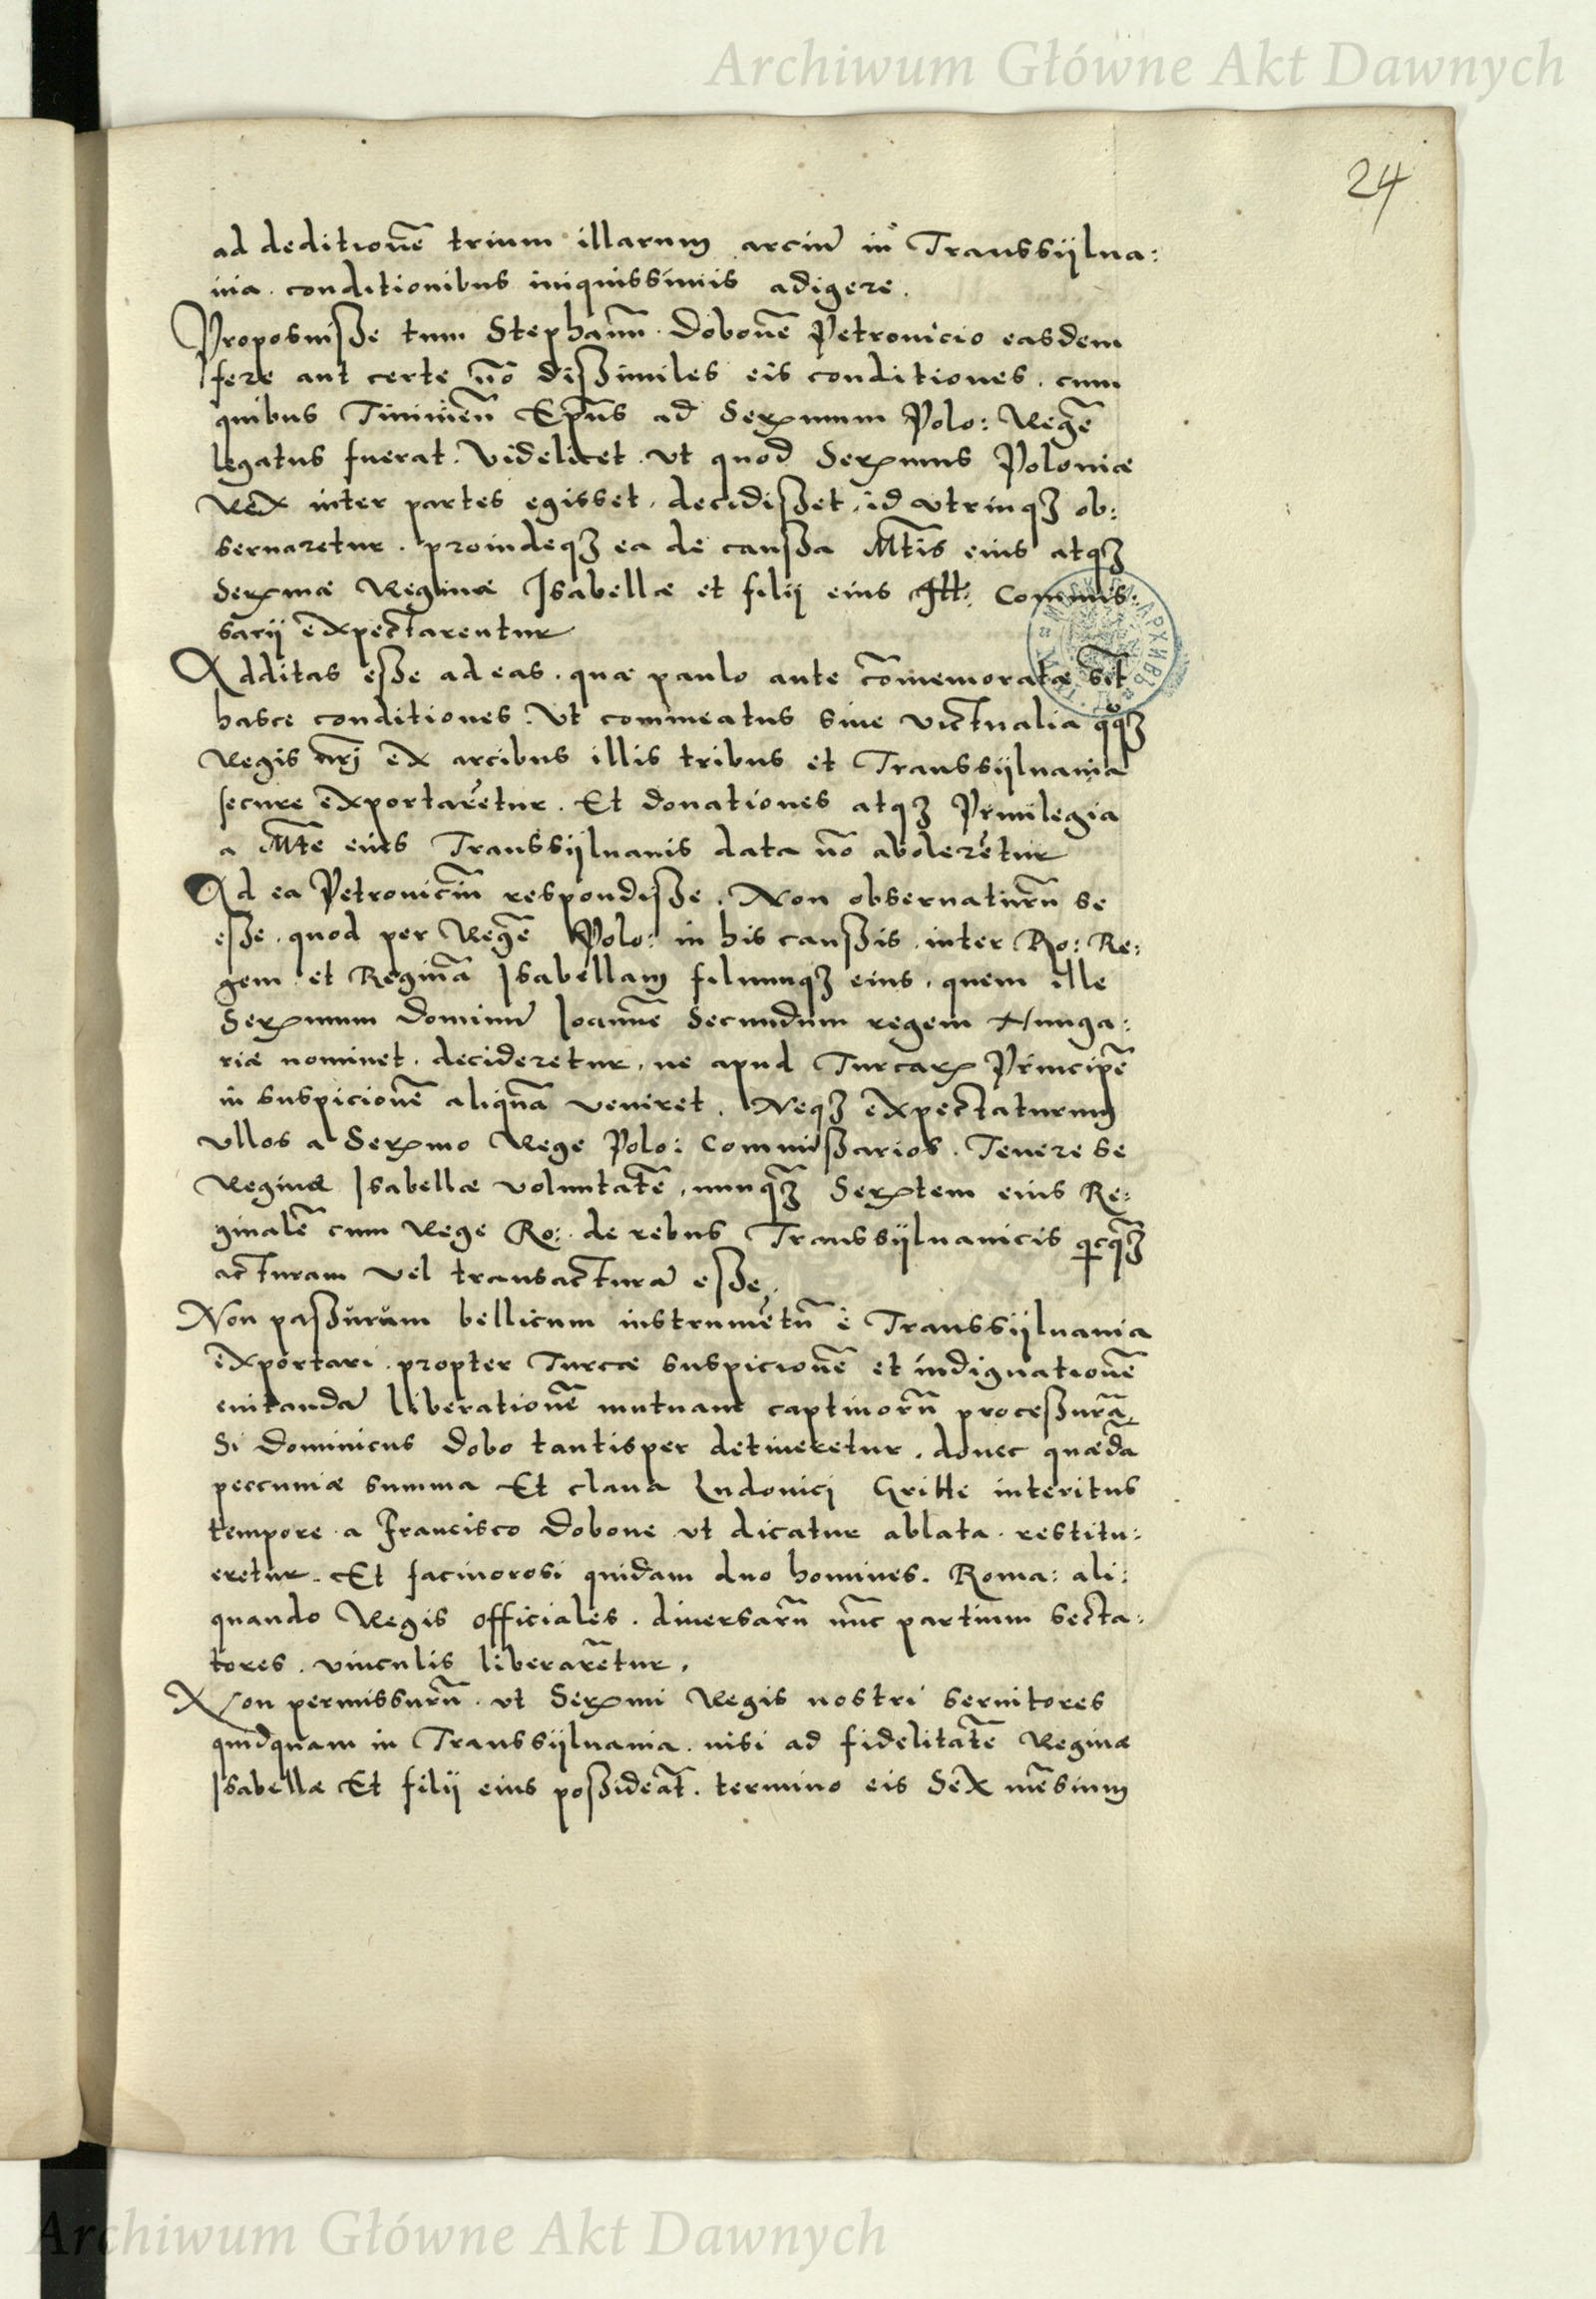 Archiwum Główne Akt Dawnych
24
ad deditionē trium illarum arciū in Transsijlua:
nia. conditionibus iniquissimis adigere.
Proposuisse tum Stephanū. Dobonē Petronicio easdem
fere aut certe nō dissimiles eis conditiones. cum
quibus Tininien̄ Ep̄us ad Serꝫmum Polo: Regē
legatus fuerat. Videlicet. Vt quod Serꝫmus Poloniæ
Rex inter partes egisset. decidisset. id vtrinqꝫ ob:
seruaretur. proindeqꝫ ea de caussa M̄tis eius atqꝫ
Serꝫmæ Reginæ Isabellæ et filij eius Ill: Commis:
sarij expectarentur
Additas esse ad eas. quæ paulo ante cōmemoratæ sūt
hasce conditiones. Vt commeatus siue victualia q̊qꝫ
Regis nr̄j ex arcibus illis tribus et Transsijluania
secure exportarētur. Et donationes atqꝫ Priuilegia
a M̄te eius Transsijluanis data nō abolerētur
Ad ea Petroniciū respondisse. Non obseruaturū se
esse. quod per Regē Polo: in his caussis. inter Ro: Re:
gem et Reginā Isabellam filiumqꝫ eius. quem ille
Serꝫmum dominū Ioannē Secundum regem Hunga:
riæ nominet. decideretur. ne apud Turcaꝝ Principē
in suspicionē aliquā veniret. Neqꝫ expectaturum
vllos a Serꝫmo Rege Polo: Commissarios. Tenere se
Reginæ Isabellæ voluntatē. nunqꝫ̄ Serꝫtem eius Re:
ginalē cum Rege Ro: de rebus Transsijluanicis qicqꝫ̄
acturam vel transacturā esse.
Non passurum bellicum instrumētū è Transsijluania
exportari. propter Turcæ suspicionē et indignationē
euitandā liberationē mutuam captiuorū processurā.
Si Dominicus Dobo tantisper detineretur. donec quædā
peccuniæ summa Et claua Ludouici Gritte interitus
tempore a Francisco Dobone vt dicatur ablata. restitu:
eretur. Et facinorosi quidam duo homines. Roma: ali:
quando Regis officiales. diuersarū nūc partium secta:
tores. vinculis liberarētur.
Non permissurū. vt Serꝫmi Regis nostri seruitores
quidquam in Transsijluania. nisi ad fidelitatē Reginæ
Isabellæ Et filij eius possideāt. termino eis Sex mēsium
Archiwum Główne Akt Dawnych